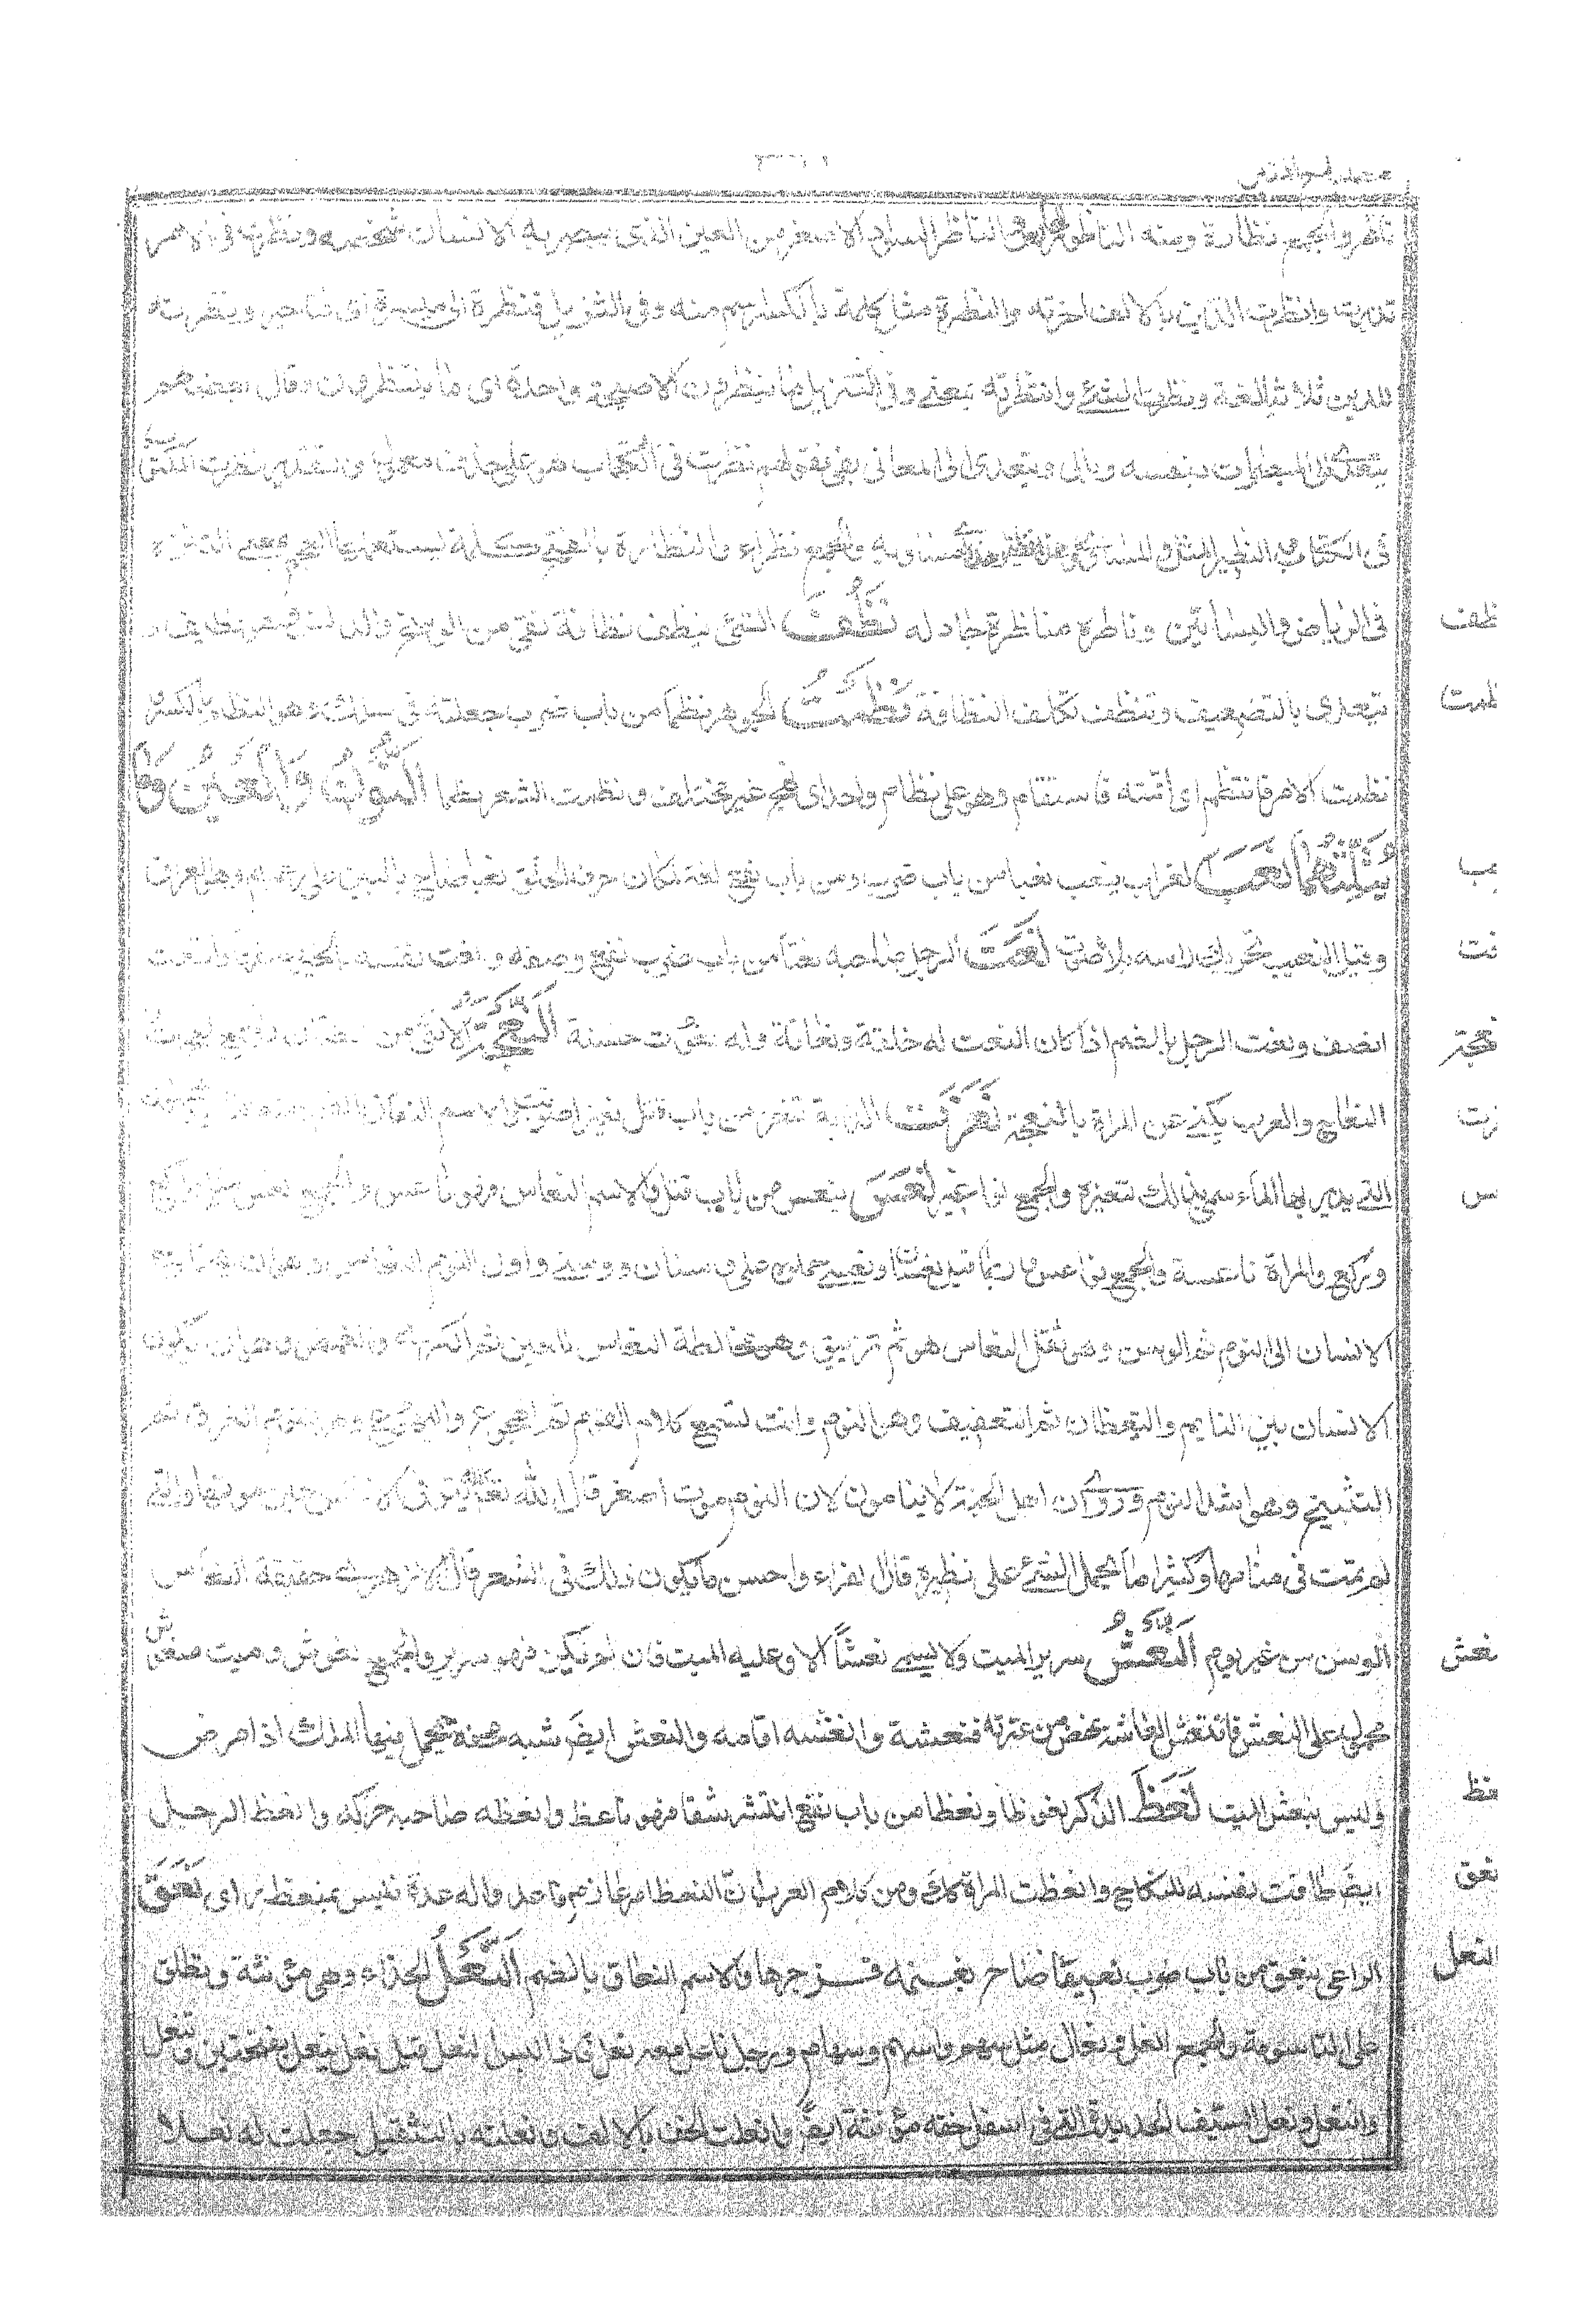 ناظر والجمع نظارة ومنه الناظور والناظر السواد الاصغر من العين الذى يبصر به الانسان شخصه ونظرت فى الامر
تدبرت وانظرت الدين بالالف اخرته والنظرة مثل كلمة بالكسر اسم منه وفى التنزيل فنظرة الى ميسرة اى فتاخير ونظرته
الدين ثلاثيا لغة ونظرت الشئ وانتظرته بمعنى وفى التنزيل ما ينظرون الا صيحة واحدة اى ما ينتظرون وقال بعضهم
يتعدى الى المبصرات بنفسه والى ويتعدى الى المعانى بفى فقولهم نظرت فى الكتاب هو على حذف معمول والتقدير نظرت المكتوب
فى الكتاب والنظير المثل المساوى وهذا نظير هذا اى مساويه والجمع نظراء والنظارة بالفتح كلمة يستعملها العجم بمعنى التنزه
فى الرياض والبساتين وناظره مناظرة جادله نَظُفَ الشئ ينظف نظافة نقى من الوسخ والدنس فهو نظيف
نظف
يتعدى بالتضعيف وتنظف تكلف النظافة نَظَمْتُ الجوهر نظما من باب ضرب جعلته فى سلك وهو النظام بالكسر
ظمت
نظمت الامر فانتظم اى اقمته فاستقام وهو على نظام واحد اى نهج غير مختلف ونظمت الشعر نظما النُّونُ وَالْعَيْنُ وَمَا
يُثَلِّثُهُمَا نَعَبَ الغراب ينعب نعبا من باب ضرب ومن باب نفع لغة لمكان حرف الحلق نعبا صاح بالبين على زعمهم وهو الغراق
عب
وقيل النعيب تحريك راسه بلا صوت نَعَتَ الرجل صاحبه نعتا من باب نفع وصفه ونعت نفسه بالخير وصفها وانتعت
نعت
اتصف ونعت الرجل بالضم اذا كان النعت له خلقة ونعاتة وله نعوت حسنة اَلنَّعْجَةُ الانثى من الضان والجمع نعجات
نعجة
النعاج والعرب يكنى عن المراة بالنعجة نَعَرَتِ الدابة تنعر من باب قتل نعيرا صوتت والاسم النعار بالضم ومنه
عرت
التى يدير بها الماء سميت بذلك لنعيرها والجمع نواعير نَعَسَ ينعس من باب قتل والاسم النعاس فهو ناعس والجمع نعس مثل راكع
عس
وركع والمراة ناعسة والجمع نواعس وربما قيل نعسان ونعسى حملوه على وسنان ووسنى واول النوم النعاس وهو ان يحتاج
الانسان الى النوم ثم الوسن وهو ثقل النعاس ثم ترنيق وهو مخالطة النعاس للعين ثم الكرى والغمض وهو ان يكون
الانسان بين النايم واليقظان ثم التعفيق وهو النوم وانت تسمع كلام القوم ثم الهجود والهجوع وهو النوم الغرق ثم
التسبيخ وهو اشد النوم وروى ان اهل الجنة لا ينامون لان النوم موت اصغر قال الله تعالى الله يتوفى الانفس حين موتها والتى
لم تمت فى منامها وكثيرا ما يحمل الشئ على نظيره قال الفراء واحسن ما يكون ذلك فى الشعر قال الازهرى حقيقة النعاس
الوسن من غير نوم اَلنَّعْشُ سرير الميت ولا يسمى نعشا الا وعليه الميت فان لم يكن فهو سرير والجمع نعوش وميت منعوش
نعش
محمول على النعش وانتعش العاثر نهض من عثرته ونعشه وانعشه اقامه والنعش ايضا شبه محفة يحمل فيها الملك اذا مرض
وليس بنعش الميت نَعَظَ الذكر نعوظا ونعظا من باب نفع انتشر شبقا فهو ناعظ وانعظه صاحبه حركه وانعظ الرجل
نعظ
ايضا تاقت نفسه للنكاح وانعظت المراة كذلك ومن كلام العرب ان النعظ امر عازم فاعد له عدة فليس لمنعظ راى نَعَقَ
نعق
الراعى ينعق من باب ضرب نعيقا صاح بغنمه وزجرها والاسم النعاق بالضم اَلنَّعْلُ الحذاء وهى مؤنثة وتطلق
النعل
على التاسومة والجمع انعل ونعال مثل سهم واسهم وسهام ورجل ناعل معه نعل فاذا لبس النعل قيل نعل ينعل بفتحتين وتنعل
وانتعل ونعل السيف الحديدة التى فى اسفل جفنه مؤنثة ايضا وانعلت الخف بالالف ونعلته بالتثقيل جعلت له نعلا